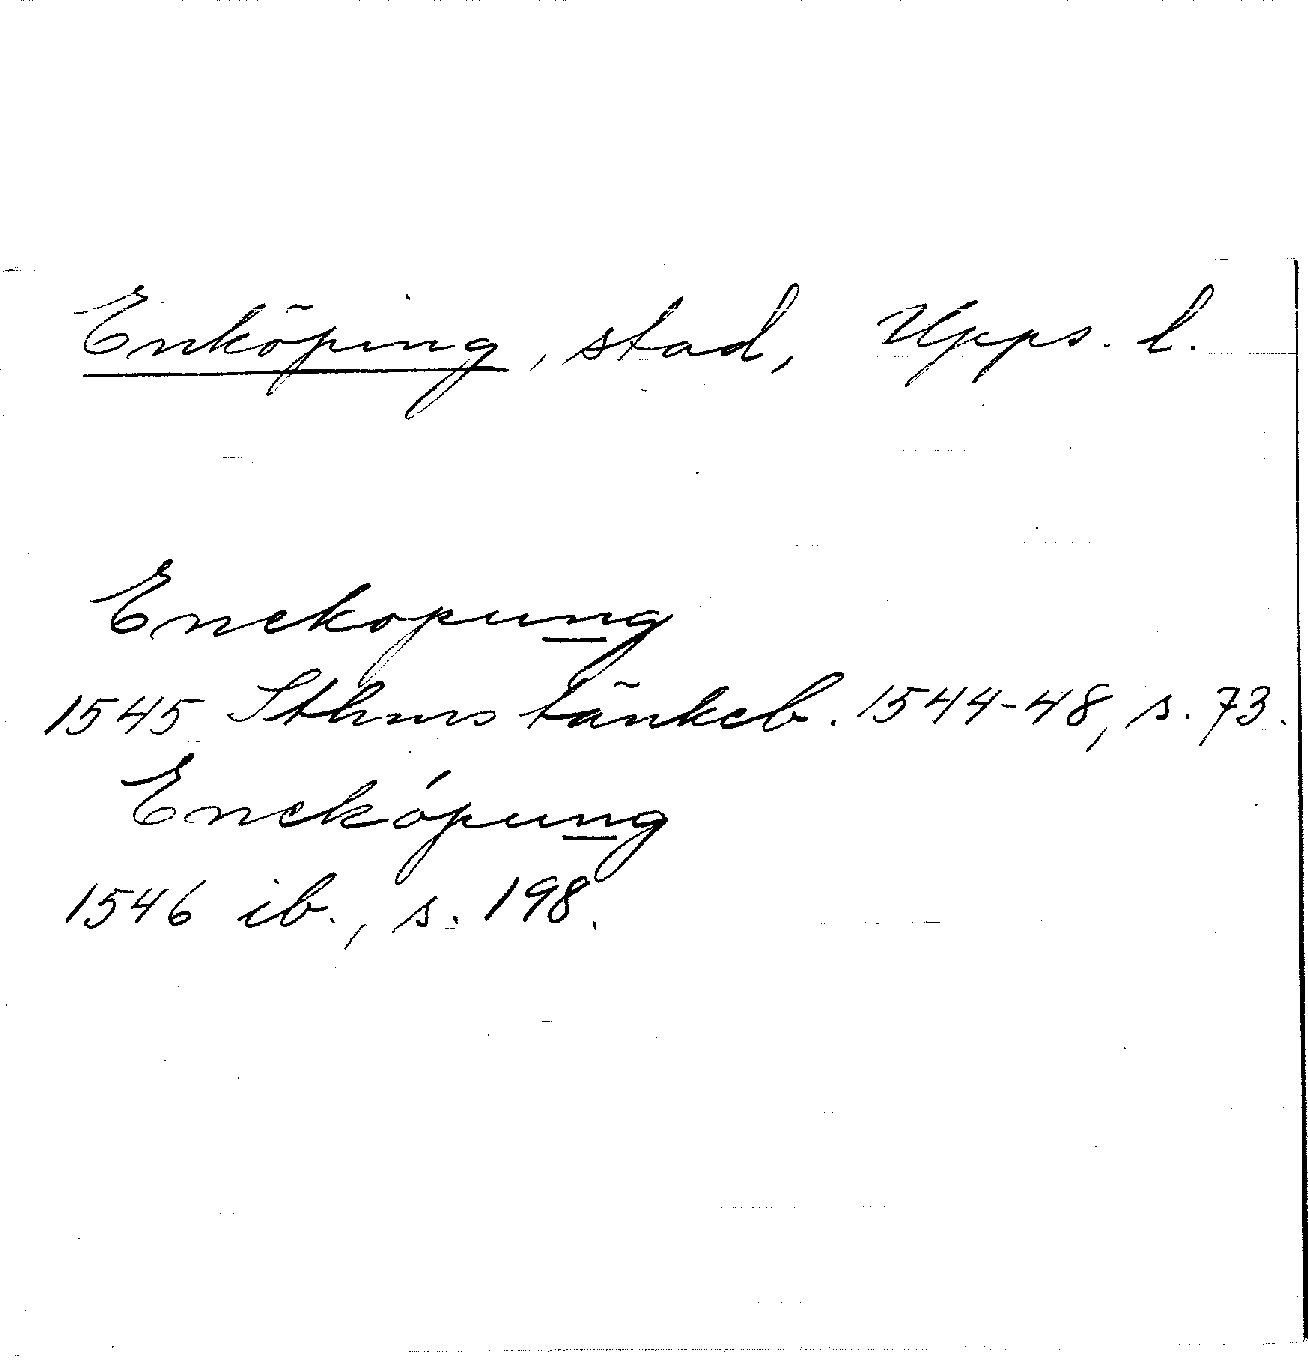 Enköping, stad, Upps. l.
Enekopung
1545 Sthms tänkeb. 1544-48, s. 73.
Eneköpung
1546 ib., s. 198.